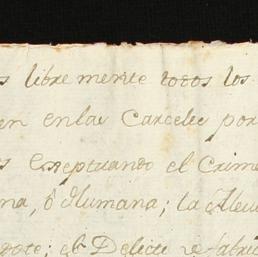 s libremente todos los
en enlas Carceles por
s eseptuando el Crime
na, ó Humana; la Aleu
ote; el Delicto de fabric